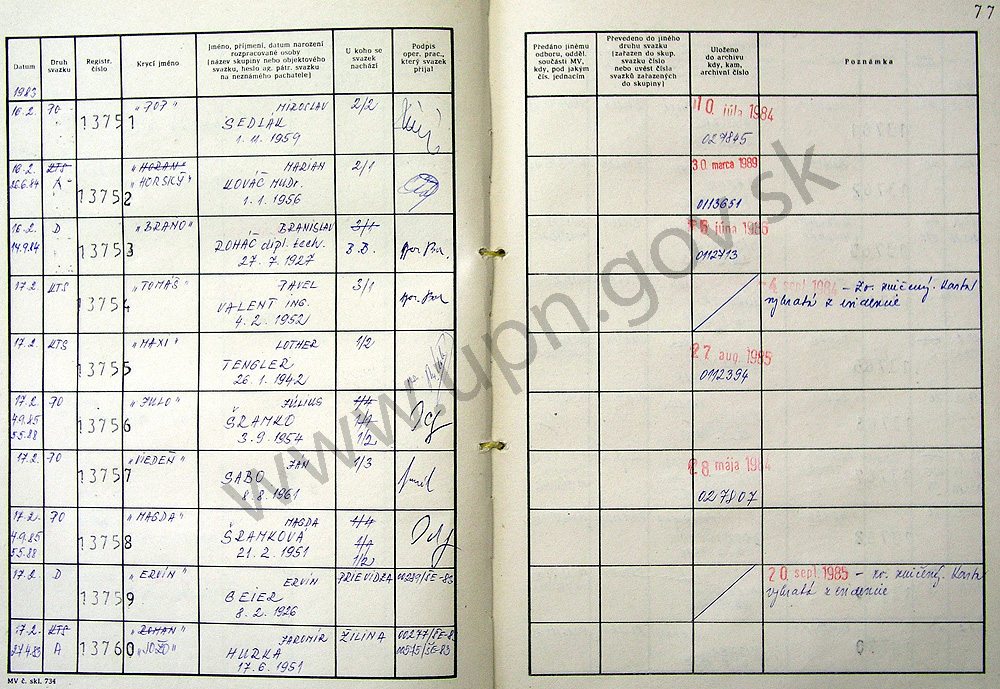 77
Datum
Druh svazku
Registr. číslo
Krycí jméno
Jméno, příjmení, datum narození rozpracované osoby (název skupiny nebo objektového svazku, heslo ag. pátr. svazku na neznámého pachatele)
U koho se svazek nachází
Podpis oper. prac., který svazek přijal
Předáno jinému odboru, odděl. součásti MV, kdy, pod jakým čís. jednacím
Převedeno do jiného druhu svazku (zařazen do skup. svazku číslo nebo uvést čísla svazků zařazených do skupiny)
Uloženo do archivu kdy, kam, archivní číslo
Poznámka
1983
16.2. PO 13751 „POP“ MIROSLAV 2/2
SEDLÁK
1. 11. 1959
10. júla 1984
029845
16.2. KTS 13752 „HORAN“ MARIAN 2/1
26.6.84 A „HORSKÝ“ KOVÁČ MUDr.
1. 1. 1956
30. marca 1989
0113651
16.2. D 13753 „BRANO“ BRANISLAV 3/1
14.9.84 ROHÁČ dipl. tech. B.B.
27. 7. 1927
júna 1985
0112713
17.2. KTS 13754 „TOMÁŠ“ PAVEL 3/1
VALENT ing.
4. 2. 1952
4. sept. 1984 – Zv. zničený. Karta
vybratá z evidencie
17.2. KTS 13755 „MAXI“ LOTHER 1/2
TENGLER
26. 1. 1942
27 aug. 1985
0112394
17.2. PO 13756 „JULO“ JÚLIUS 1/4
4.9.85 ŠRAMKO 1/1
5.5.88 3. 9. 1954 1/2
17.2. PO 13757 „VIEDEŇ“ JÁN 1/3
SABO
8. 8. 1961
28. mája 1984
027807
17.2. PO 13758 „MAGDA“ MAGDA 1/4
4.9.85 ŠRAMKOVÁ 1/1
5.5.88 21. 2. 1951 1/2
17.2. D 13759 „ERVÍN“ ERVÍN PRIEVIDZA 00279/ŠE-83
BEIER
8. 2. 1926
20. sept. 1985 – zv. zničený. Karta
vybratá z evidencie
17.2. KTS 13760 „ROMAN“ JAROMÍR ŽILINA 00277/ŠE-83
27.4.83 A „JOŽO“ HURKA 00575/ŠE-83
17. 6. 1951
MV č. skl. 734
www.upn.gov.sk